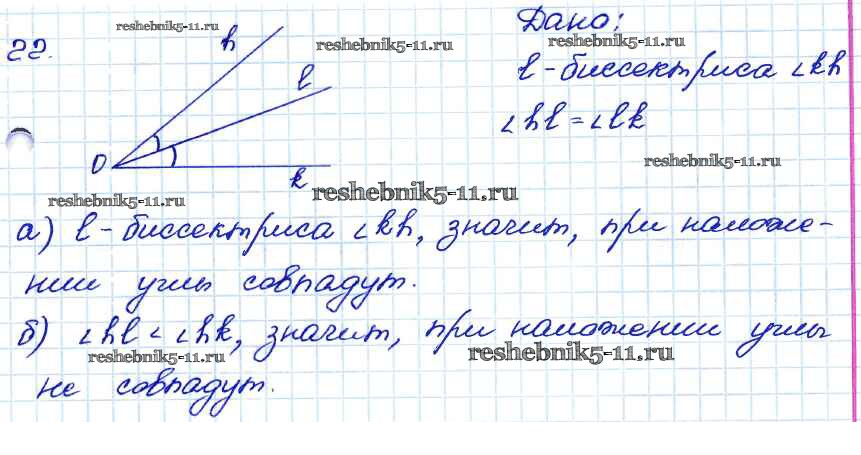 reshebnik5-11.ru
Дано:
22.
h
reshebnik5-11.ru
reshebnik5-11.ru
l - биссектриса ∠kh
l
∠hl = ∠lk
O
reshebnik5-11.ru
k
reshebnik5-11.ru
reshebnik5-11.ru
а) l - биссектриса ∠kh, значит, при наложе-
нии углы совпадут.
б) ∠hl < ∠hk, значит, при наложении углы
reshebnik5-11.ru
reshebnik5-11.ru
не совпадут.